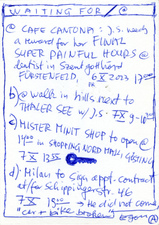 WAITING FOR / @
@ CAFE CANTONA: J.S. needs
a reward for her FINAL
SUPER PAINFUL HOURS @
dentist in Szentgotthárd
FÜRSTENFELD, 6 X 2023 13
b) @ walk in hills next to
THALER SEE w/ J.S. 7 X 9-18
c) MISTER MINIT SHOP to open @
14:00 in SHOPPING NORD MALL, GÖSTING
7 X 13
d) Milan to sign appt. contract
at/for Schippingerstr. 46
7 X 18 → He did not come,
"car + bike broken"